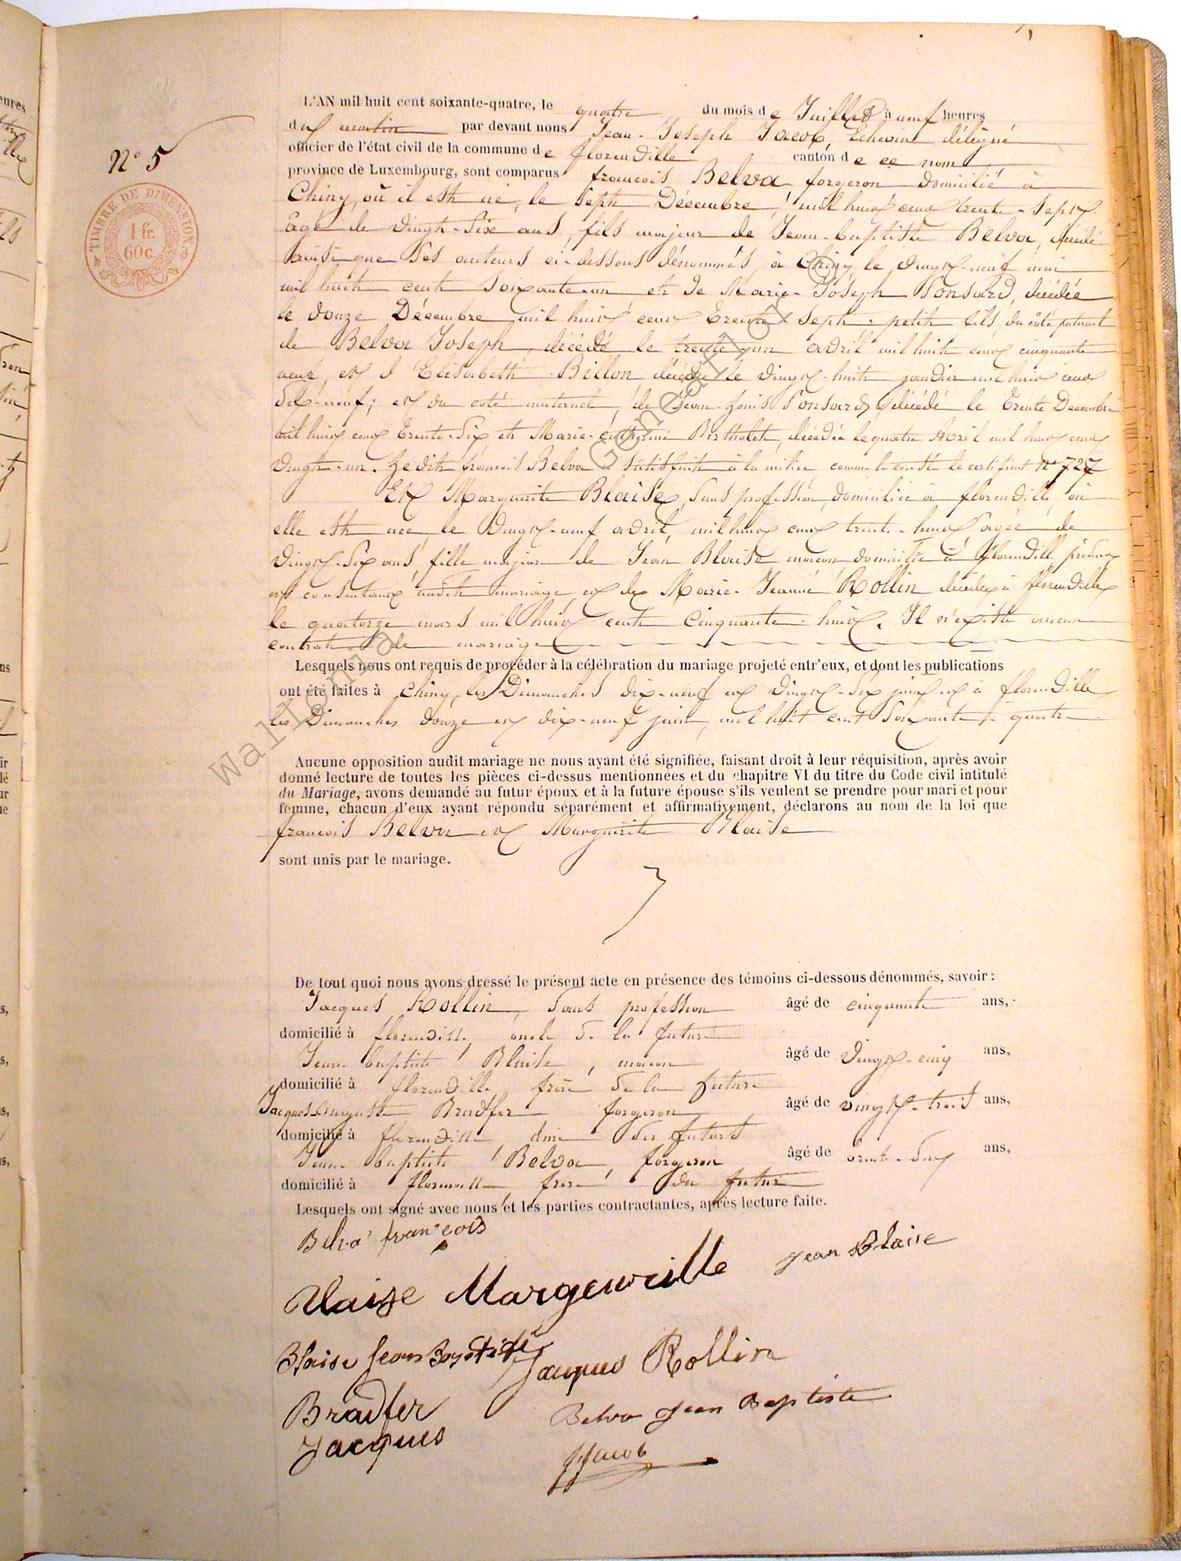 N° 5
TIMBRE DE DIMENSION
1 fr.
60c.
L'AN mil huit cent soixante-quatre, le quatre du mois de Juillet à neuf heures
du matin par devant nous Jean-Joseph Jacob, Echevin délégué
officier de l'état civil de la commune de florenville canton de ce nom
province de Luxembourg, sont comparus françois Belva, forgeron domicilié à
Chiny, où il est né, le Sept Décembre, mil huit cent trente-Sept
âgé de Vingt-Six ans, fils majeur de Jean-baptiste Belva, décédé
ainsi que Ses auteurs ci-dessous dénommés, à Chiny, le Vingt-neuf mai
mil huit cent Soixante-un et de Marie-Joseph Ponsard, décédée
le douze Décembre mil huit cent Trente Sept. petit fils du côté paternel
de Belva Joseph, décédé le trente un avril mil huit cent cinquante
neuf, et d'Elisabeth Billon décédée le Vingt-huit janvier mil huit cent
Dix-neuf; et du coté maternel, de Jean-Louis Ponsard, décédé le Trente Décembre
mil huit cent Trente-Six et Marie-Catherine Bertholet, décédée le quatre Avril mil huit cent
Vingt-un. Le dit françois Belva a Satisfait à la milice comme le certificat N° 727
Et Marguerite Blaise, Sans profession, domiciliée à florenville, où
elle est née, le Vingt-neuf avril, mil huit cent trente-huit, agée de
Vingt-Six ans, fille majeure de Jean Blaise maçon domicilié à florenville, présent
et consentant audit mariage et de Marie-Jeanne Rollin décédée à florenville
le quatorze mars mil huit cent Cinquante-huit. Il n'existe aucun
contrat de mariage
Lesquels nous ont requis de procéder à la célébration du mariage projeté entr'eux, et dont les publications
ont été faites à Chiny, les Dimanches dix-neuf et Vingt-Six juin et à florenville
les Dimanches douze et dix-neuf juin, mil huit cent Soixante-quatre
Aucune opposition audit mariage ne nous ayant été signifiée, faisant droit à leur réquisition, après avoir
donné lecture de toutes les pièces ci-dessus mentionnées et du chapitre VI du titre du Code civil intitulé
du Mariage, avons demandé au futur époux et à la future épouse s'ils veulent se prendre pour mari et pour
femme, chacun d'eux ayant répondu séparément et affirmativement, déclarons au nom de la loi que
françois Belva et Marguerite Blaise
sont unis par le mariage.
De tout quoi nous avons dressé le présent acte en présence des témoins ci-dessous dénommés, savoir :
Jacques Rollin, Sans profession âgé de cinquante ans,
domicilié à florenville, oncle de la future
Jean baptiste Blaise, maçon âgé de Vingt-cinq ans,
domicilié à florenville frère de la future
Jacques Auguste Bradfer forgeron âgé de vingt-trois ans,
domicilié à florenville, ami des futurs
Jean baptiste Belva, forgeron âgé de trente-deux ans,
domicilié à florenville frère du futur
Lesquels ont signé avec nous et les parties contractantes, après lecture faite.
Belva françois
Jean Blaise
Blaise Margeurille
Blaise Jean Baptiste
Jacques Rollin
Bradfer
Jacques
Belva Jean Baptiste
JJacob
Wallonia Genealor ©